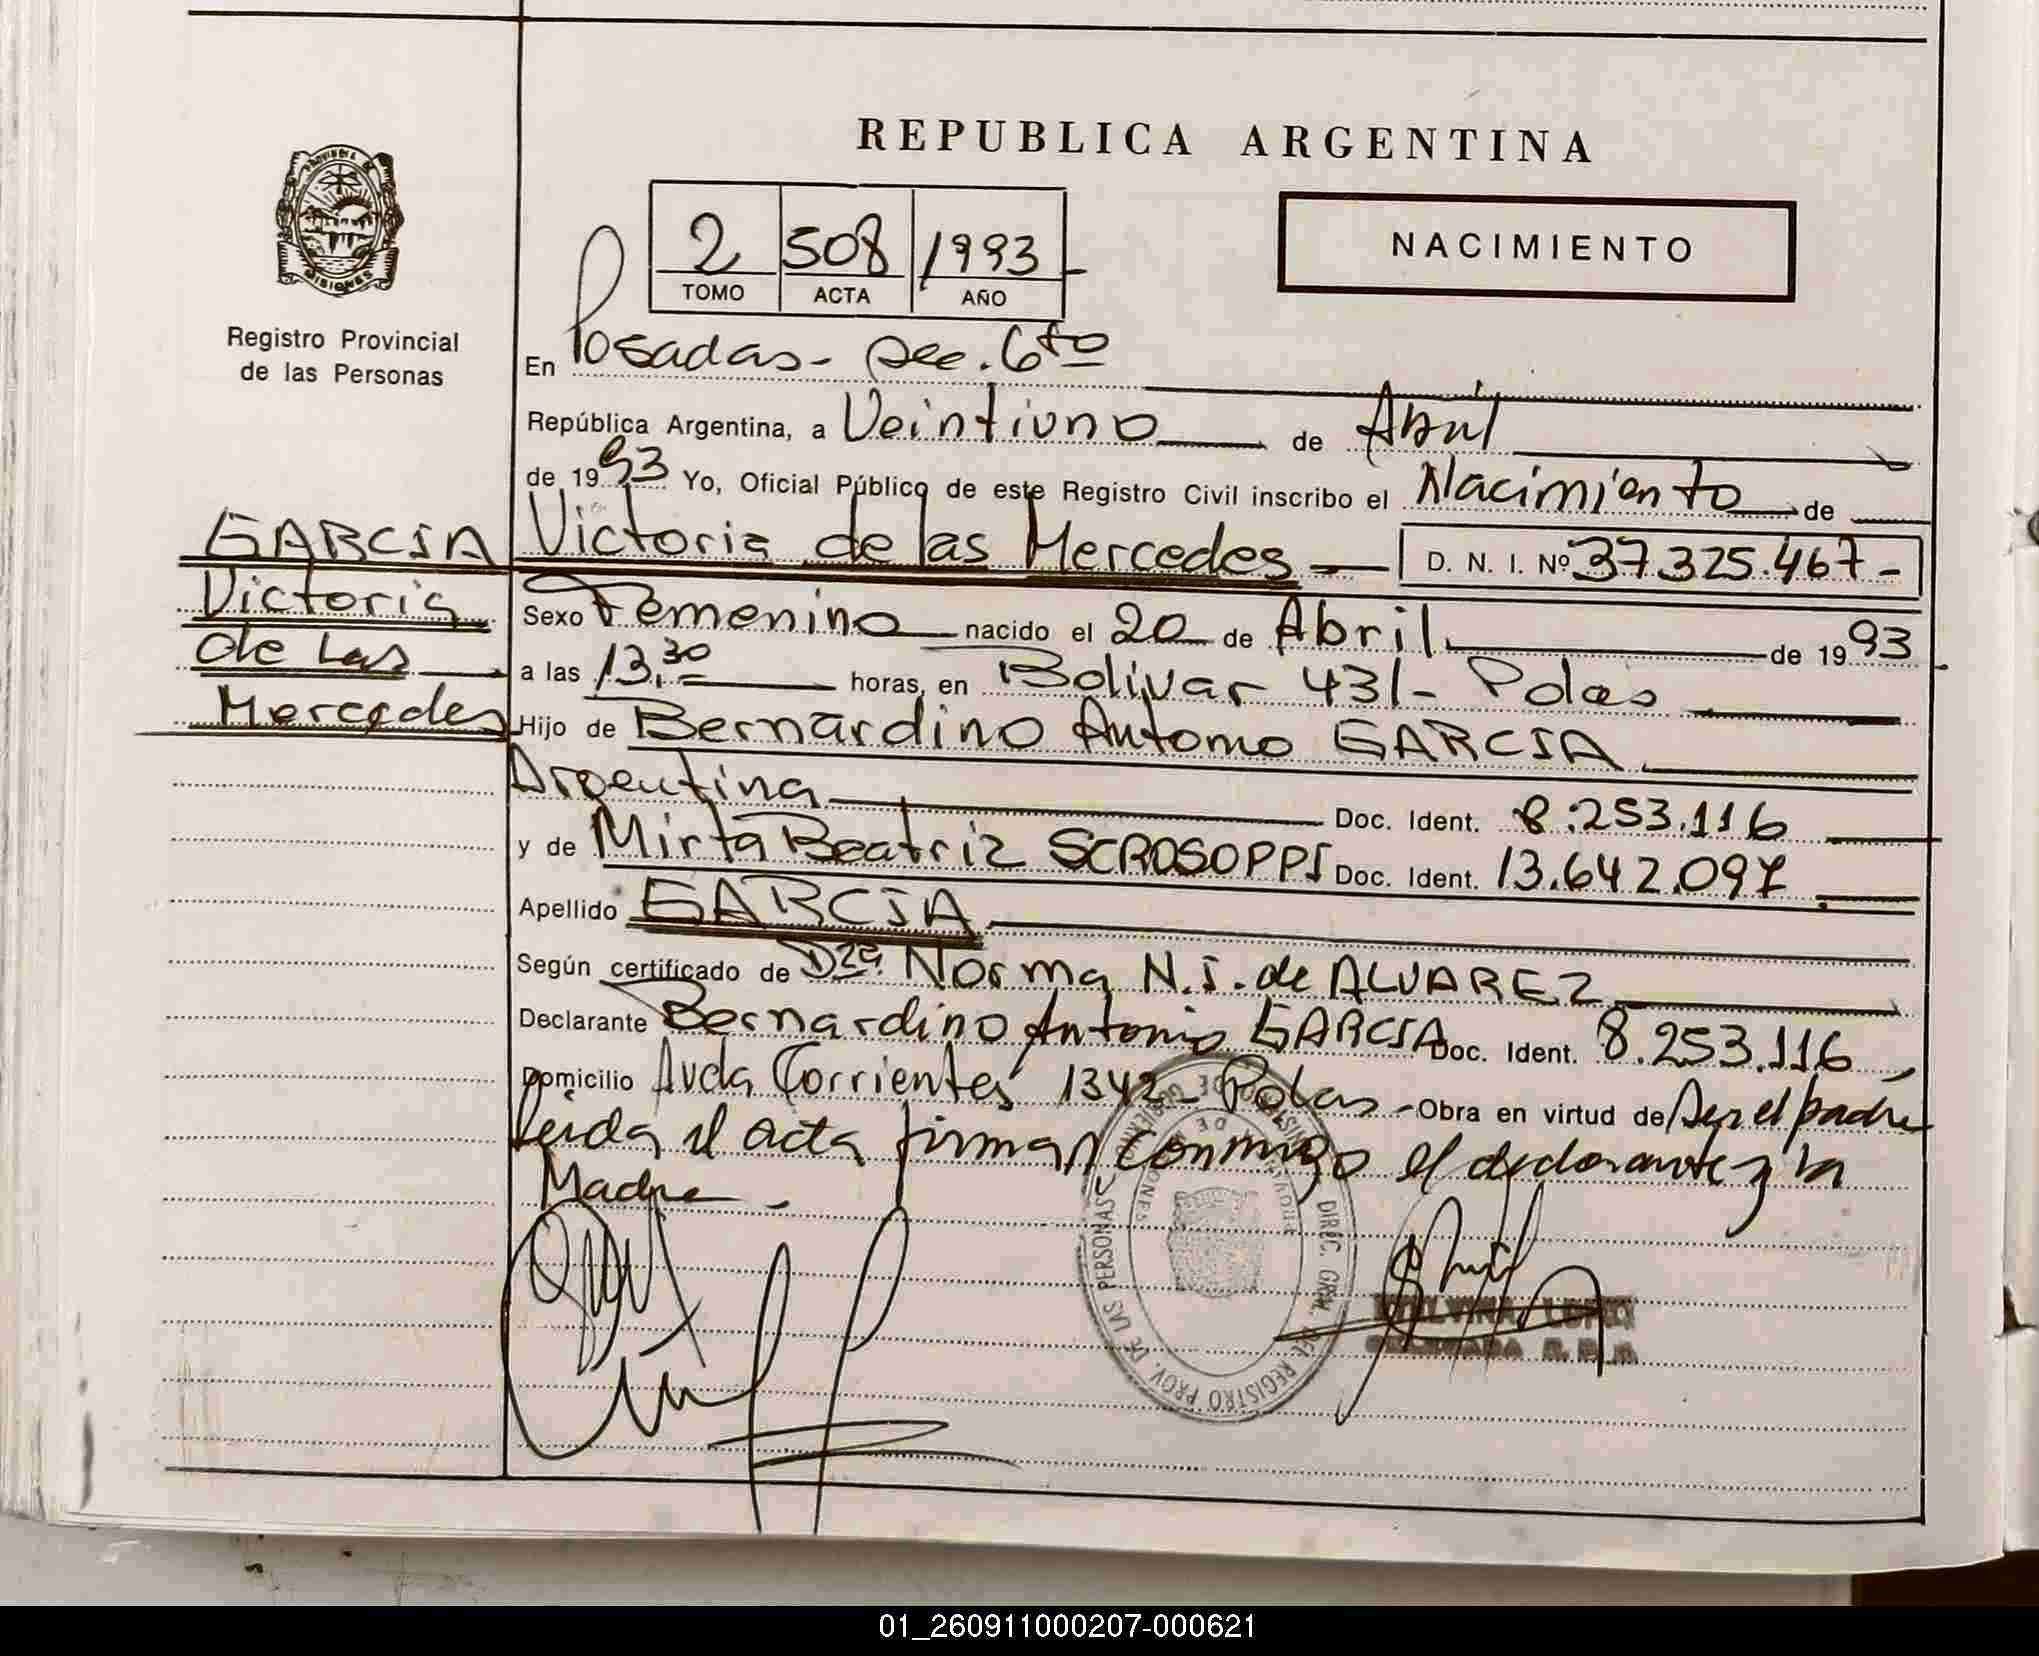 REPUBLICA ARGENTINA
PROVINCIA DE
MISIONES
Registro Provincial
de las Personas
2 508 1993
TOMO ACTA AÑO
NACIMIENTO
En Posadas - Sec. 6to
República Argentina, a Veintiuno de Abril
de 1993 Yo, Oficial Público de este Registro Civil inscribo el Nacimiento de
GARCIA
Victoria
de Las
Mercedes
Victoria de las Mercedes D. N. I. Nº 37.325.467-
Sexo Femenino nacido el 20 de Abril de 1993
a las 13,30 horas, en Bolivar 431 - Pdas
Hijo de Bernardino Antonio GARCIA
Argentina Doc. Ident. 8.253.116
y de Mirta Beatriz SCROSOPPI Doc. Ident. 13.642.097
Apellido GARCIA
Según certificado de Dra. Norma N. I. de ALVAREZ
Declarante Bernardino Antonio GARCIA Doc. Ident. 8.253.116
Domicilio Avda Corrientes 1342 - Pdas - Obra en virtud de Ser el padre
Leida el acta firman conmigo el declarante y la
Madre.
DIREC. GRAL. DEL REGISTRO PROV. DE LAS PERSONAS
01_260911000207-000621